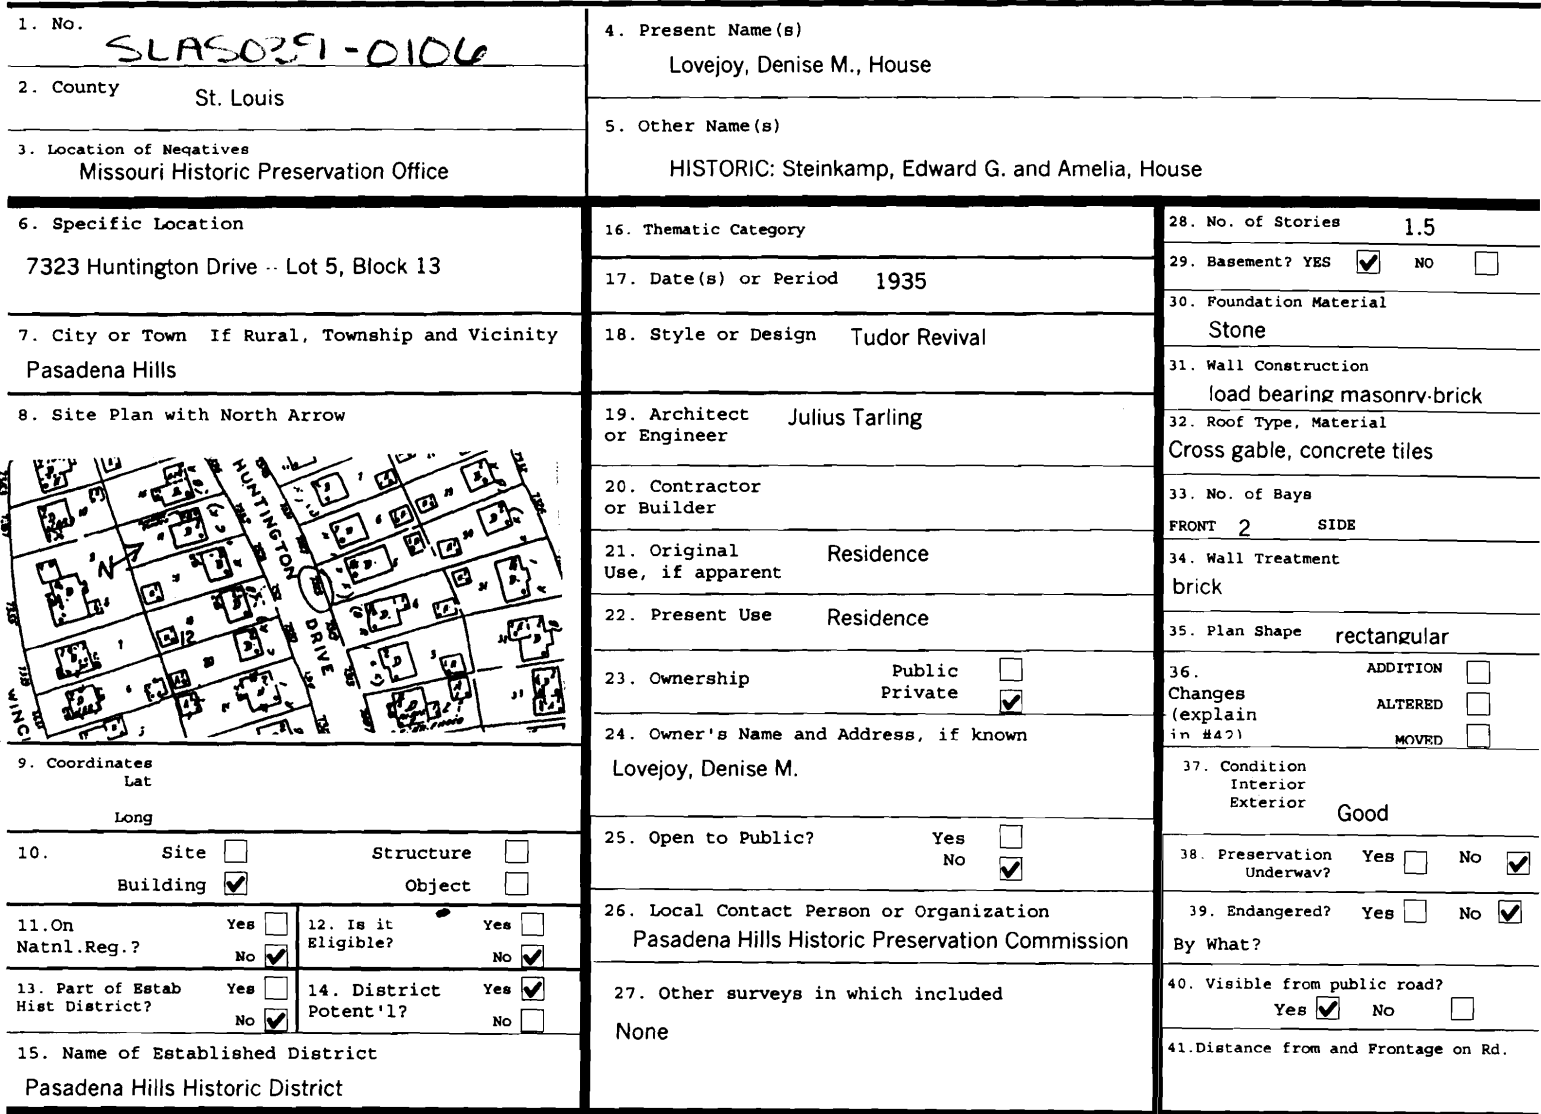 1. No.
SLAS029-0106
2. County
St. Louis
3. Location of Negatives
Missouri Historic Preservation Office
4. Present Name(s)
Lovejoy, Denise M., House
5. Other Name(s)
HISTORIC: Steinkamp, Edward G. and Amelia, House
6. Specific Location
7323 Huntington Drive -- Lot 5, Block 13
7. City or Town If Rural, Township and Vicinity
Pasadena Hills
8. Site Plan with North Arrow
N
HUNTINGTON
DRIVE
12
9. Coordinates
Lat
Long
10. Site Structure
Building Object
11.On Yes
Natnl.Reg.? No
12. Is it Yes
Eligible? No
13. Part of Estab Yes
Hist District? No
14. District Yes
Potent'l? No
15. Name of Established District
Pasadena Hills Historic District
16. Thematic Category
17. Date(s) or Period 1935
18. Style or Design Tudor Revival
19. Architect Julius Tarling
or Engineer
20. Contractor
or Builder
21. Original Residence
Use, if apparent
22. Present Use Residence
23. Ownership Public
Private
24. Owner's Name and Address, if known
Lovejoy, Denise M.
25. Open to Public? Yes
No
26. Local Contact Person or Organization
Pasadena Hills Historic Preservation Commission
27. Other surveys in which included
None
28. No. of Stories 1.5
29. Basement? YES NO
30. Foundation Material
Stone
31. Wall Construction
load bearing masonry-brick
32. Roof Type, Material
Cross gable, concrete tiles
33. No. of Bays
FRONT 2 SIDE
34. Wall Treatment
brick
35. Plan Shape rectangular
36. ADDITION
Changes
(explain ALTERED
in #42) MOVED
37. Condition
Interior
Exterior Good
38. Preservation Yes No
Underway?
39. Endangered? Yes No
By What?
40. Visible from public road?
Yes No
41.Distance from and Frontage on Rd.